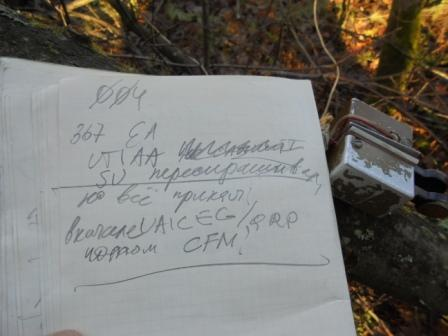 004
367 EA
UT1AA
SU переспрашивал,
но всё принял!
вначале UA1CEG/QRP
потом CFM!